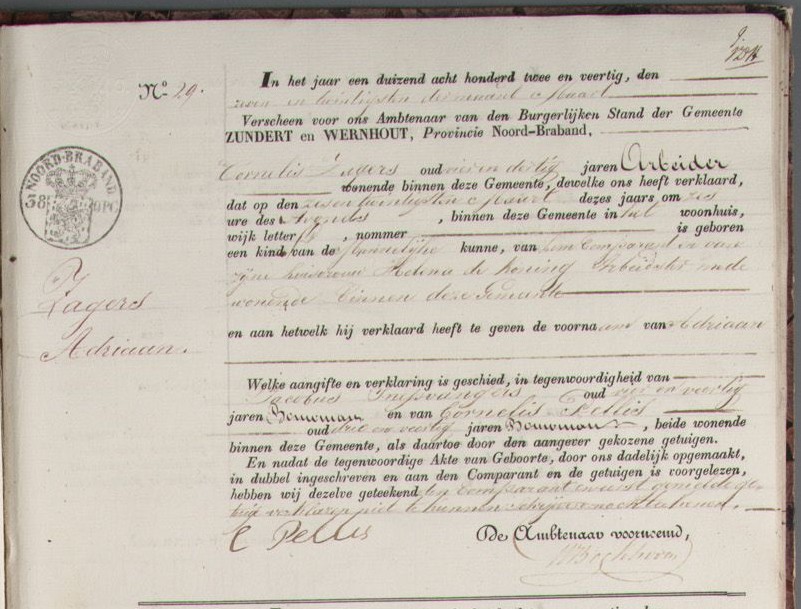 No. 29.
In het jaar een duizend acht honderd twee en veertig, den
zeven en twintigsten der maand Maart
Verscheen voor ons Ambtenaar van den Burgerlijken Stand der Gemeente
ZUNDERT en WERNHOUT, Provincie Noord-Braband,
NOORD-BRABAND
38
OPC
Cornelis Zagers oud vier en dertig jaren Arbeider
wonende binnen deze Gemeente, dewelke ons heeft verklaard,
dat op den zes en twintigsten Maart dezes jaars om zes
ure des Avonds, binnen deze Gemeente in het woonhuis,
wijk letter, nommer is geboren
een kind van de Mannelijke kunne, van hem Comparant en van
zijne huisvrouw Helena de Koning Arbeidster mede
wonende binnen deze Gemeente
Zagers
Adriaan.
en aan hetwelk hij verklaard heeft te geven de voornaam van Adriaan
Welke aangifte en verklaring is geschied, in tegenwoordigheid van
Jacobus oud en veertig
jaren Bouwman en van Cornelis Pellis
oud drie en veertig jaren Bouwman, beide wonende
binnen deze Gemeente, als daartoe door den aangever gekozene getuigen.
En nadat de tegenwoordige Akte van Geboorte, door ons dadelijk opgemaakt,
in dubbel ingeschreven en aan den Comparant en de getuigen is voorgelezen,
hebben wij dezelve geteekend den Comparant en eerst gemelde ge-
tuige verklaren niet te kunnen schrijven noch teekenen.
C Pellis
De Ambtenaar voornoemd,